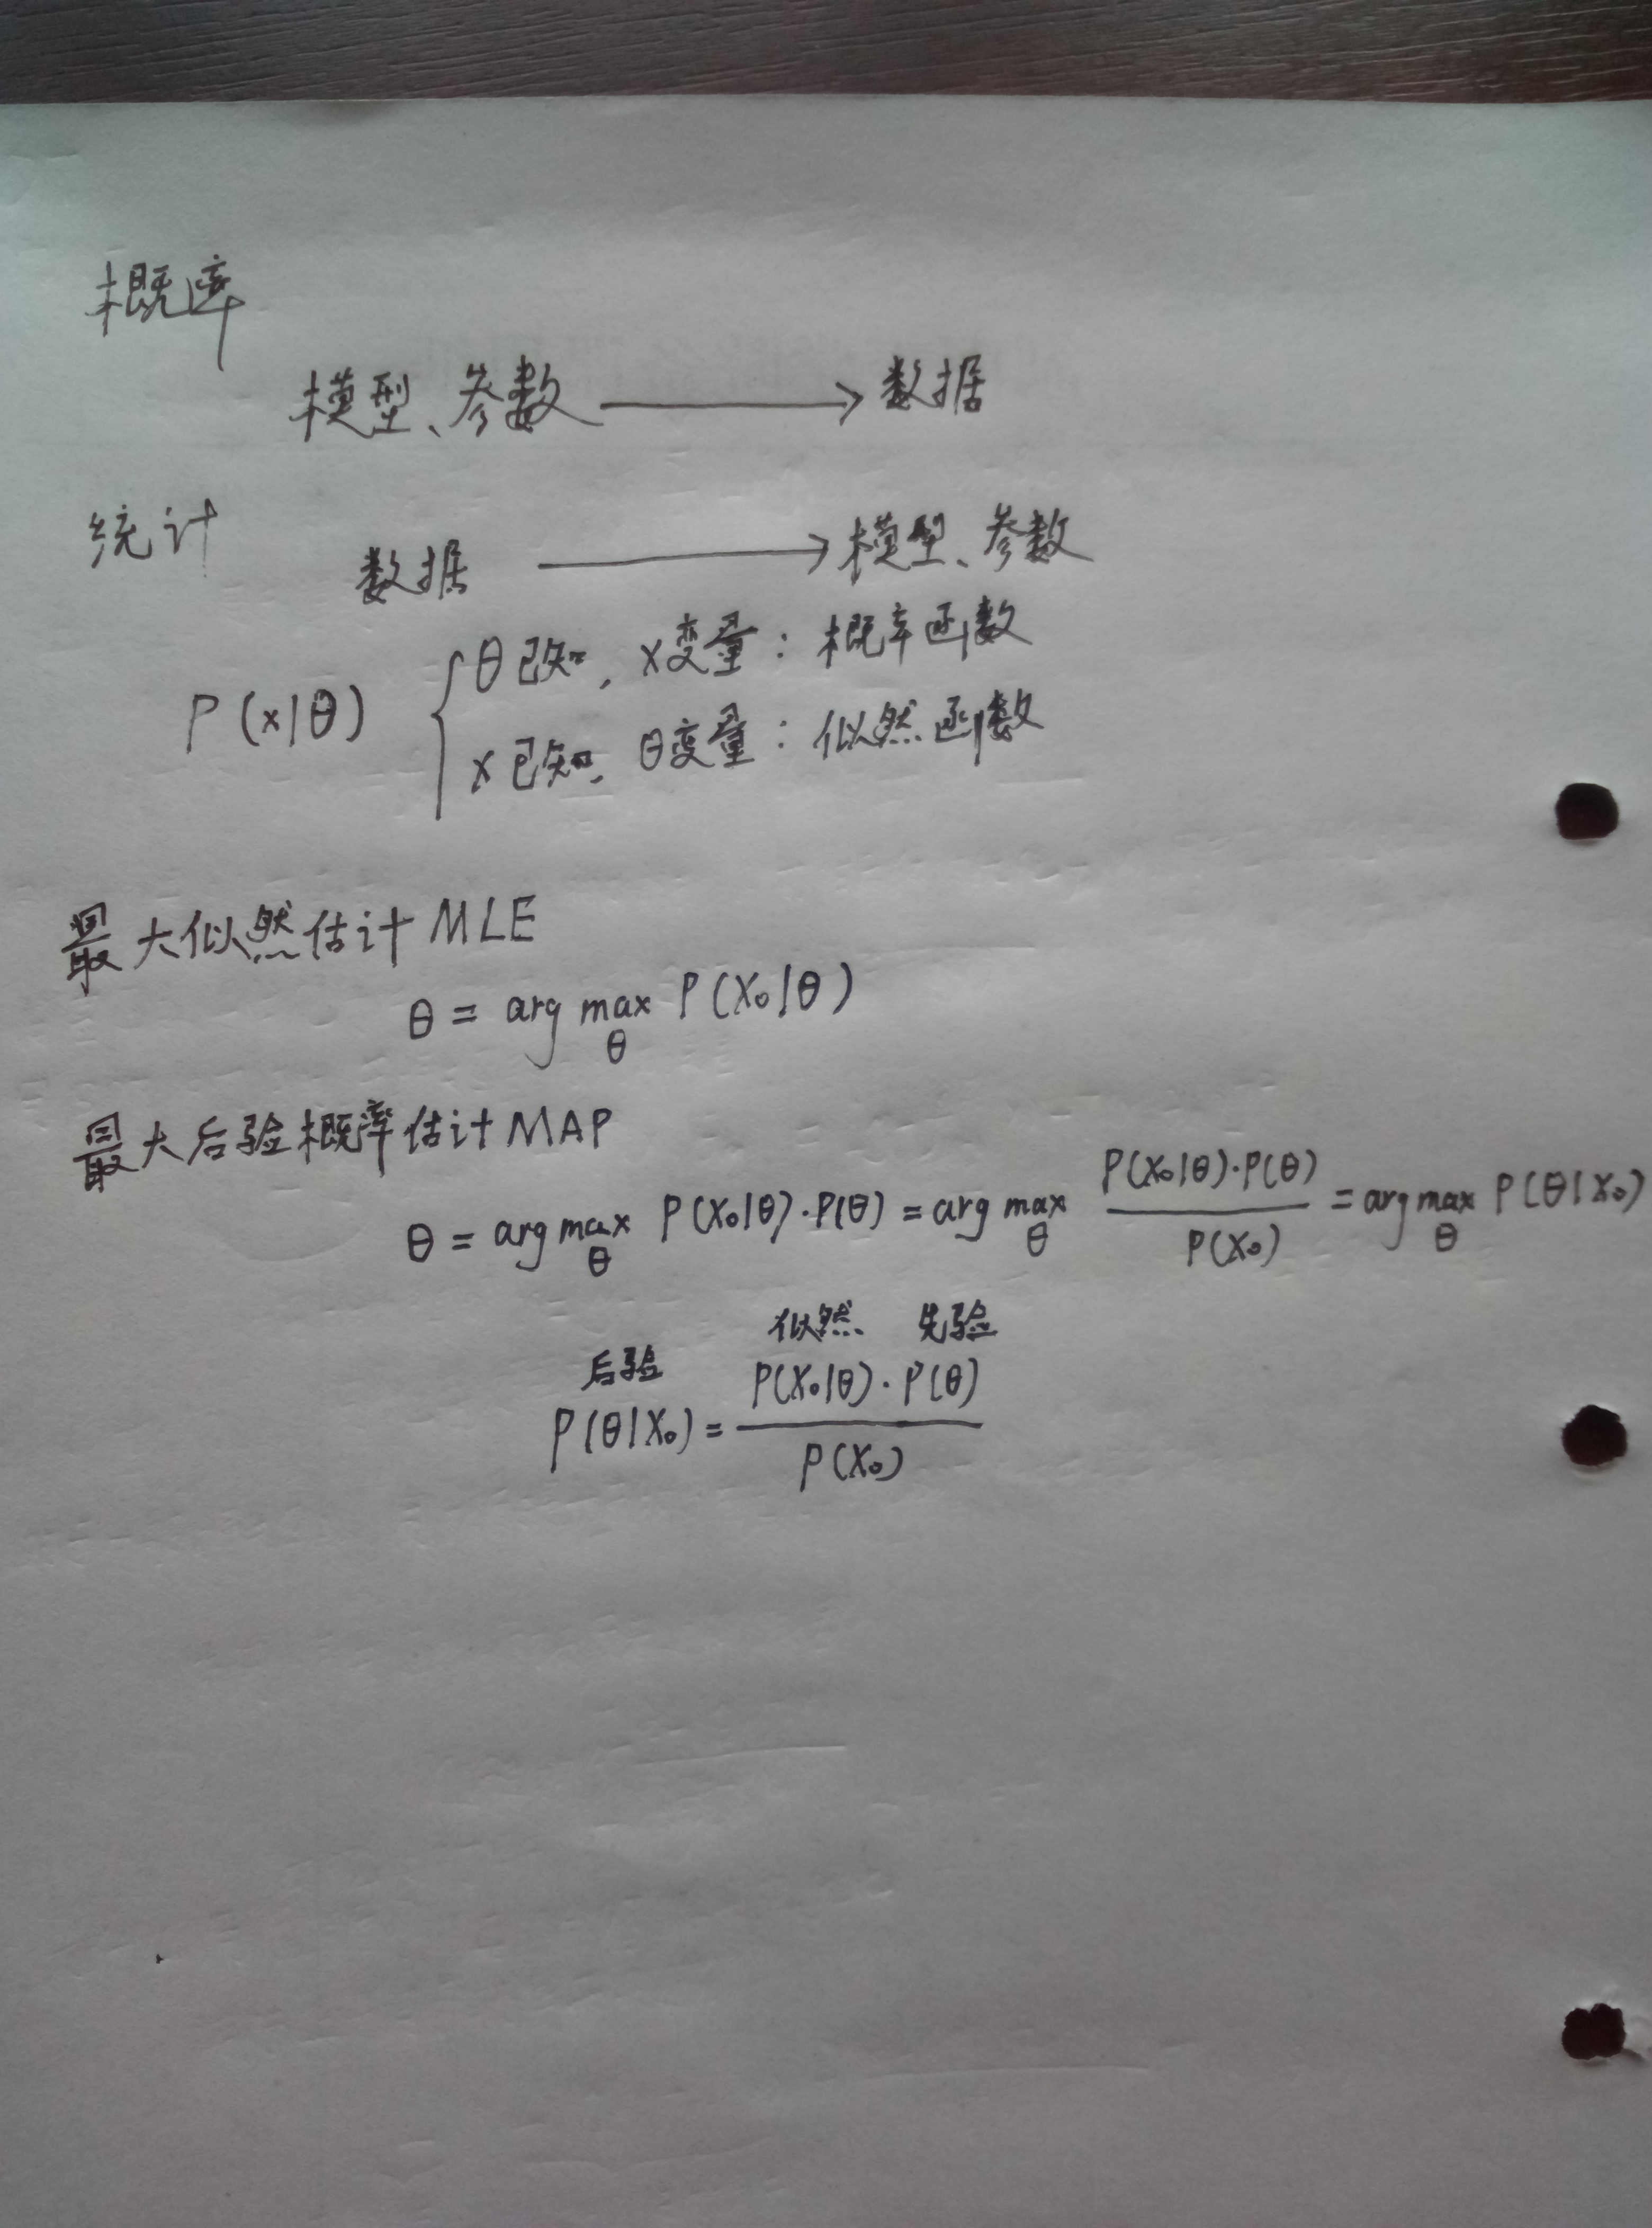 概率
模型、参数 ⟶ 数据
统计
数据 ⟶ 模型、参数
P(x|θ) { θ已知, x变量: 概率函数
x已知, θ变量: 似然函数
最大似然估计 MLE
θ = arg max_θ P(X₀|θ)
最大后验概率估计 MAP
θ = arg max_θ P(X₀|θ)·P(θ) = arg max_θ P(X₀|θ)·P(θ) / P(X₀) = arg max_θ P(θ|X₀)
后验 似然 先验
P(θ|X₀) = P(X₀|θ)·P(θ) / P(X₀)